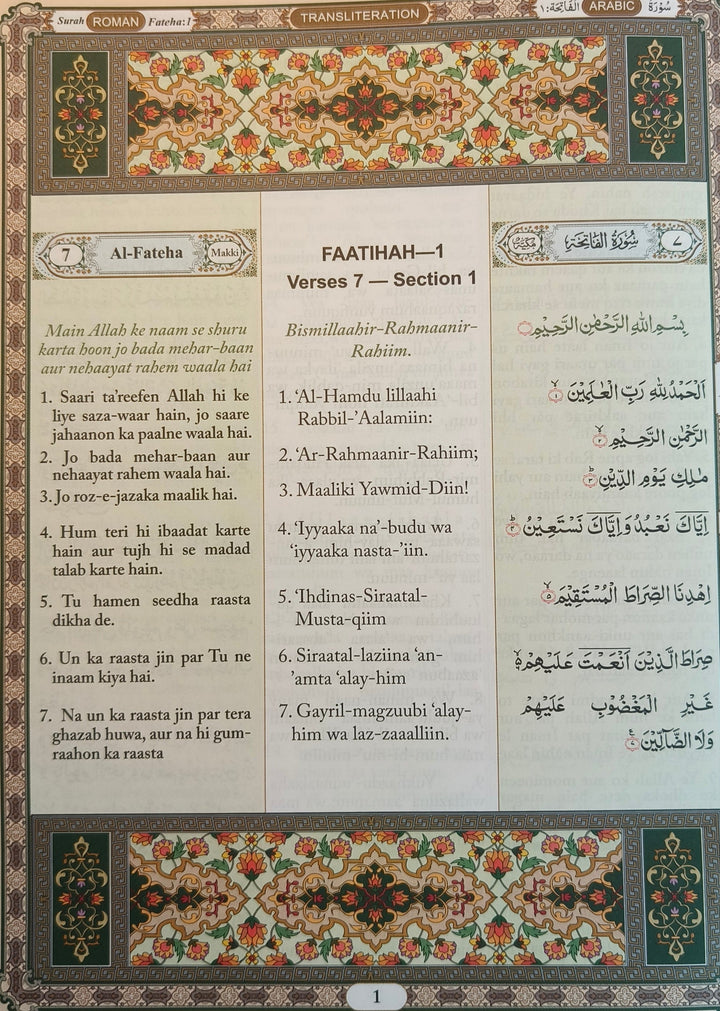 Surah ROMAN Fateha:1
TRANSLITERATION
سُوْرَة ARABIC الفَاتِحَة:١
7 Al-Fateha Makki
Main Allah ke naam se shuru
karta hoon jo bada mehar-baan
aur nehaayat rahem waala hai
1. Saari ta'reefen Allah hi ke
liye saza-waar hain, jo saare
jahaanon ka paalne waala hai.
2. Jo bada mehar-baan aur
nehaayat rahem waala hai.
3. Jo roz-e-jazaka maalik hai.
4. Hum teri hi ibaadat karte
hain aur tujh hi se madad
talab karte hain.
5. Tu hamen seedha raasta
dikha de.
6. Un ka raasta jin par Tu ne
inaam kiya hai.
7. Na un ka raasta jin par tera
ghazab huwa, aur na hi gum-
raahon ka raasta
FAATIHAH—1
Verses 7 — Section 1
Bismillaahir-Rahmaanir-
Rahiim.
1. ‘Al-Hamdu lillaahi
Rabbil-’Aalamiin:
2. ‘Ar-Rahmaanir-Rahiim;
3. Maaliki Yawmid-Diin!
4. ‘Iyyaaka na’-budu wa
‘iyyaaka nasta-’iin.
5. ‘Ihdinas-Siraatal-
Musta-qiim
6. Siraatal-laziina ‘an-
’amta ‘alay-him
7. Gayril-magzuubi ‘alay-
him wa laz-zaaalliin.
٧ سُوْرَةُ الْفَاتِحَةِ مَكِّيَّةٌ
بِسْمِ اللهِ الرَّحْمٰنِ الرَّحِيْمِ
اَلْحَمْدُ لِلّٰهِ رَبِّ الْعٰلَمِيْنَ ۙ﴿١﴾
الرَّحْمٰنِ الرَّحِيْمِ ۙ﴿٢﴾
مٰلِكِ يَوْمِ الدِّيْنِ ؕ﴿٣﴾
اِيَّاكَ نَعْبُدُ وَاِيَّاكَ نَسْتَعِيْنُ ؕ﴿٤﴾
اِهْدِنَا الصِّرَاطَ الْمُسْتَقِيْمَ ۙ﴿٥﴾
صِرَاطَ الَّذِيْنَ اَنْعَمْتَ عَلَيْهِمْ ۙ﴿٦﴾
غَيْرِ الْمَغْضُوْبِ عَلَيْهِمْ
وَلَا الضَّآلِّيْنَ ﴿٧﴾
1